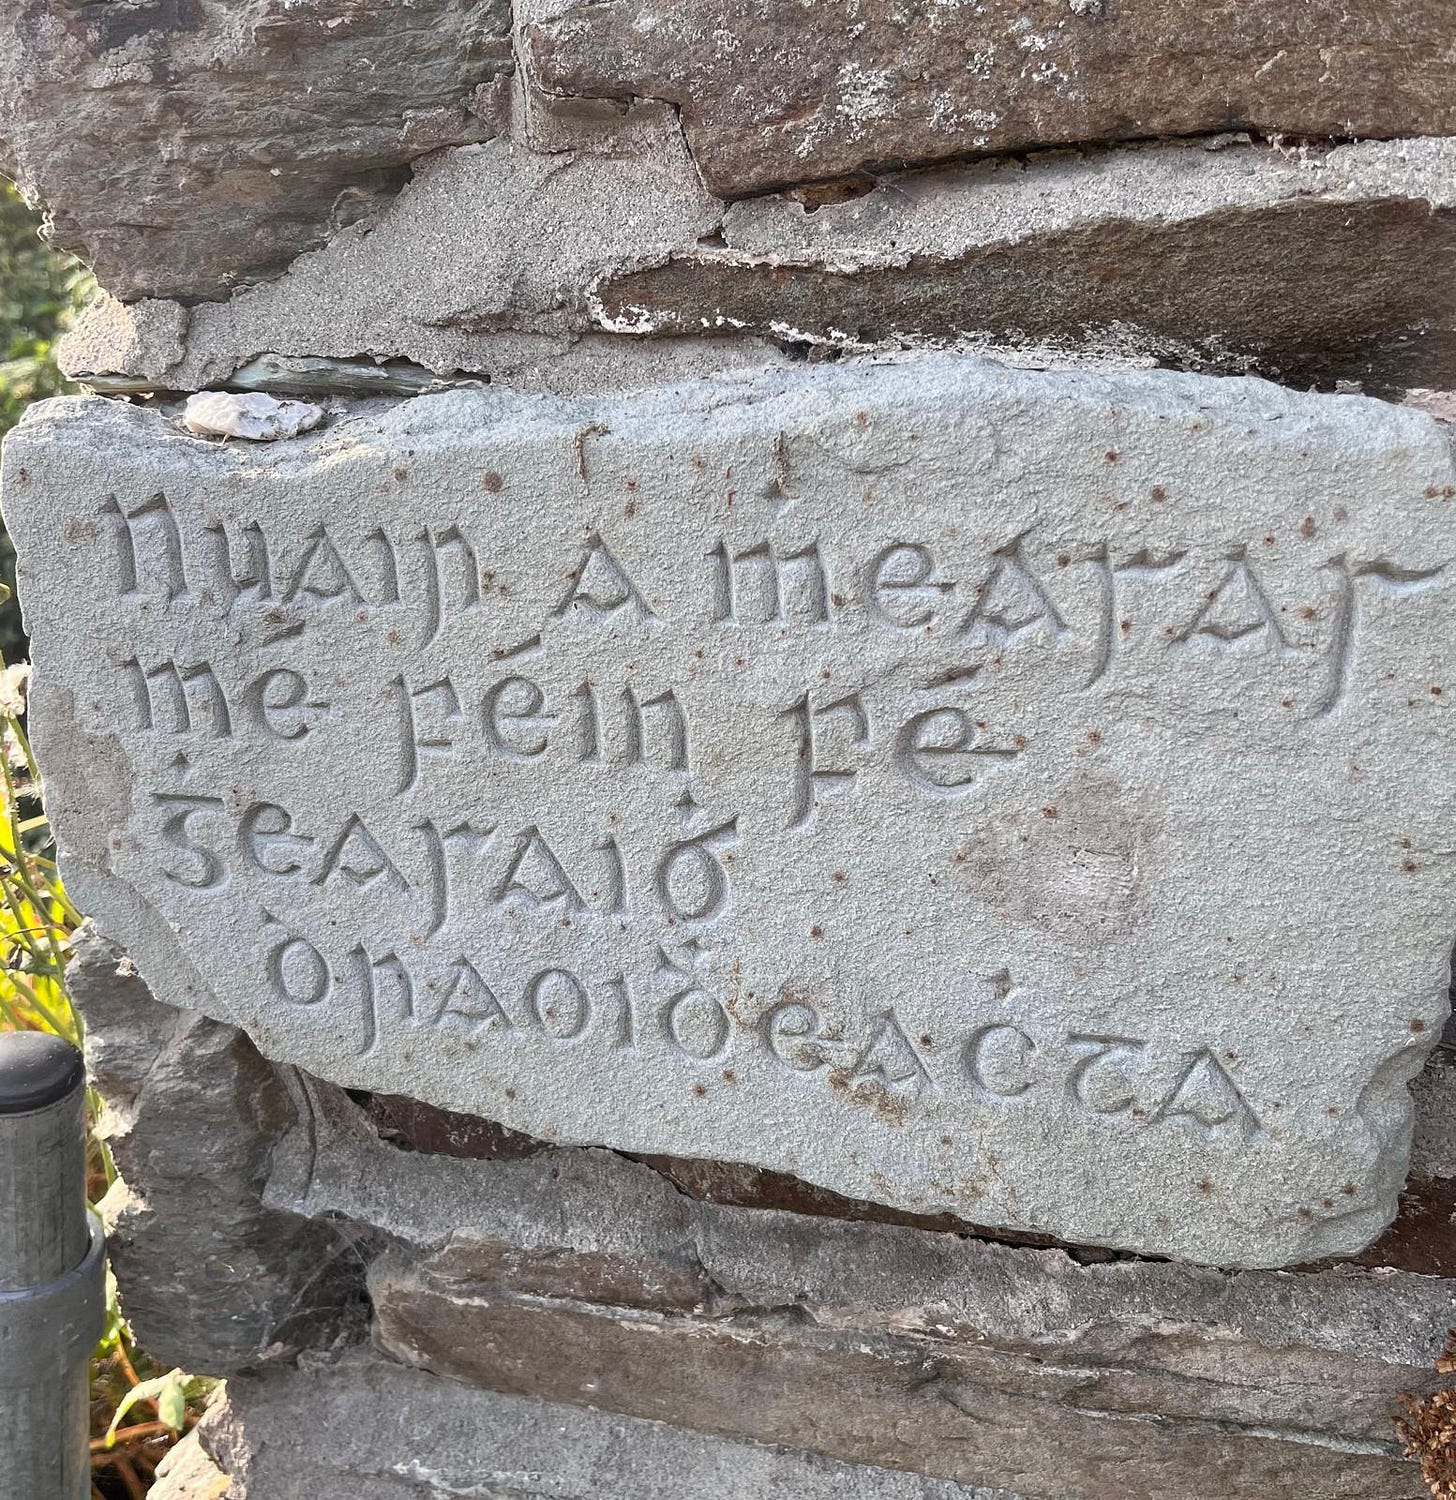 Nuair a ṁeasas
mé féin fé
ġeasaiḃ
ḋraoiḋeaċta